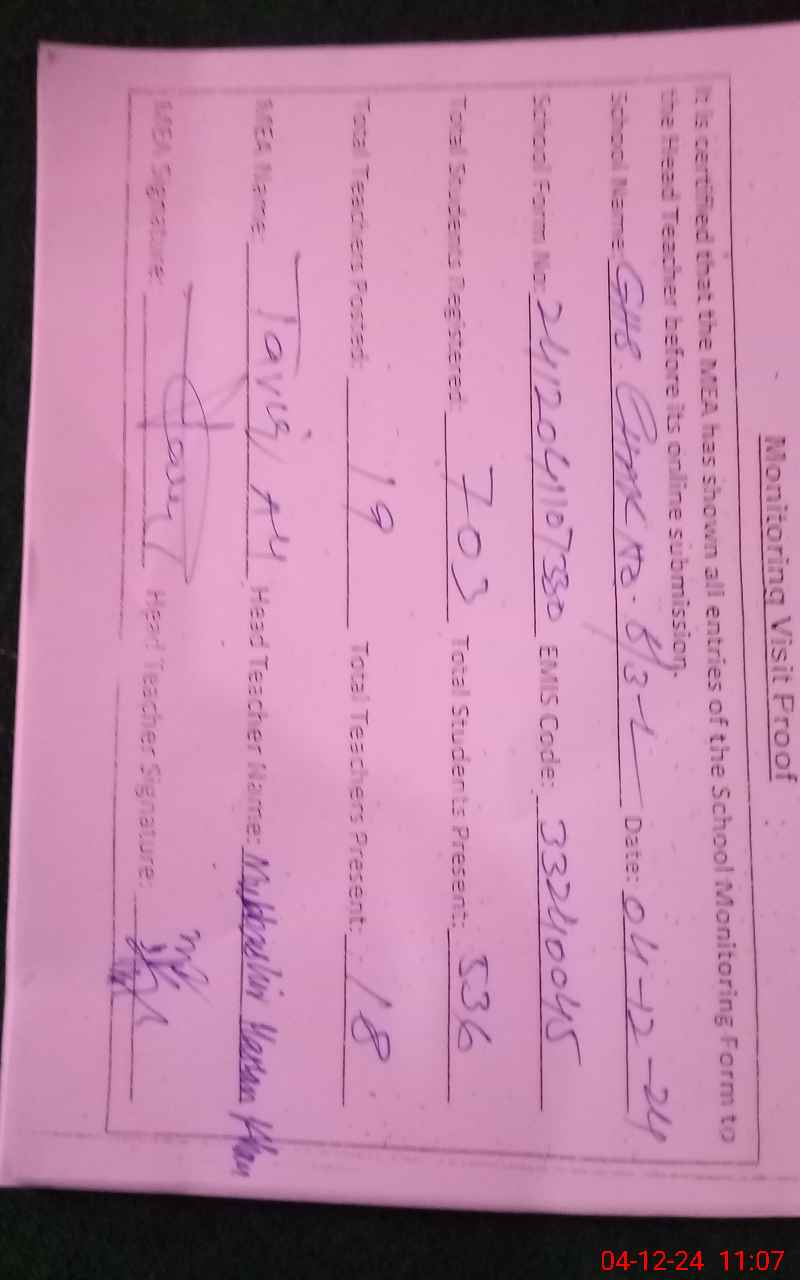 Monitoring Visit Proof
It is certified that the MEA has shown all entries of the School Monitoring Form to
the Head Teacher before its online submission.
School Name: GHS. Chak No. 8/3-L Date: 04-12-24
School Form No: 2412041107330 EMIS Code: 33240045
Total Students Registered: 703 Total Students Present: 536
Total Teachers Posted: 19 Total Teachers Present: 18
MEA Name: Head Teacher Name: Hassan Khan
MEA Signature: Head Teacher Signature:
04-12-24 11:07